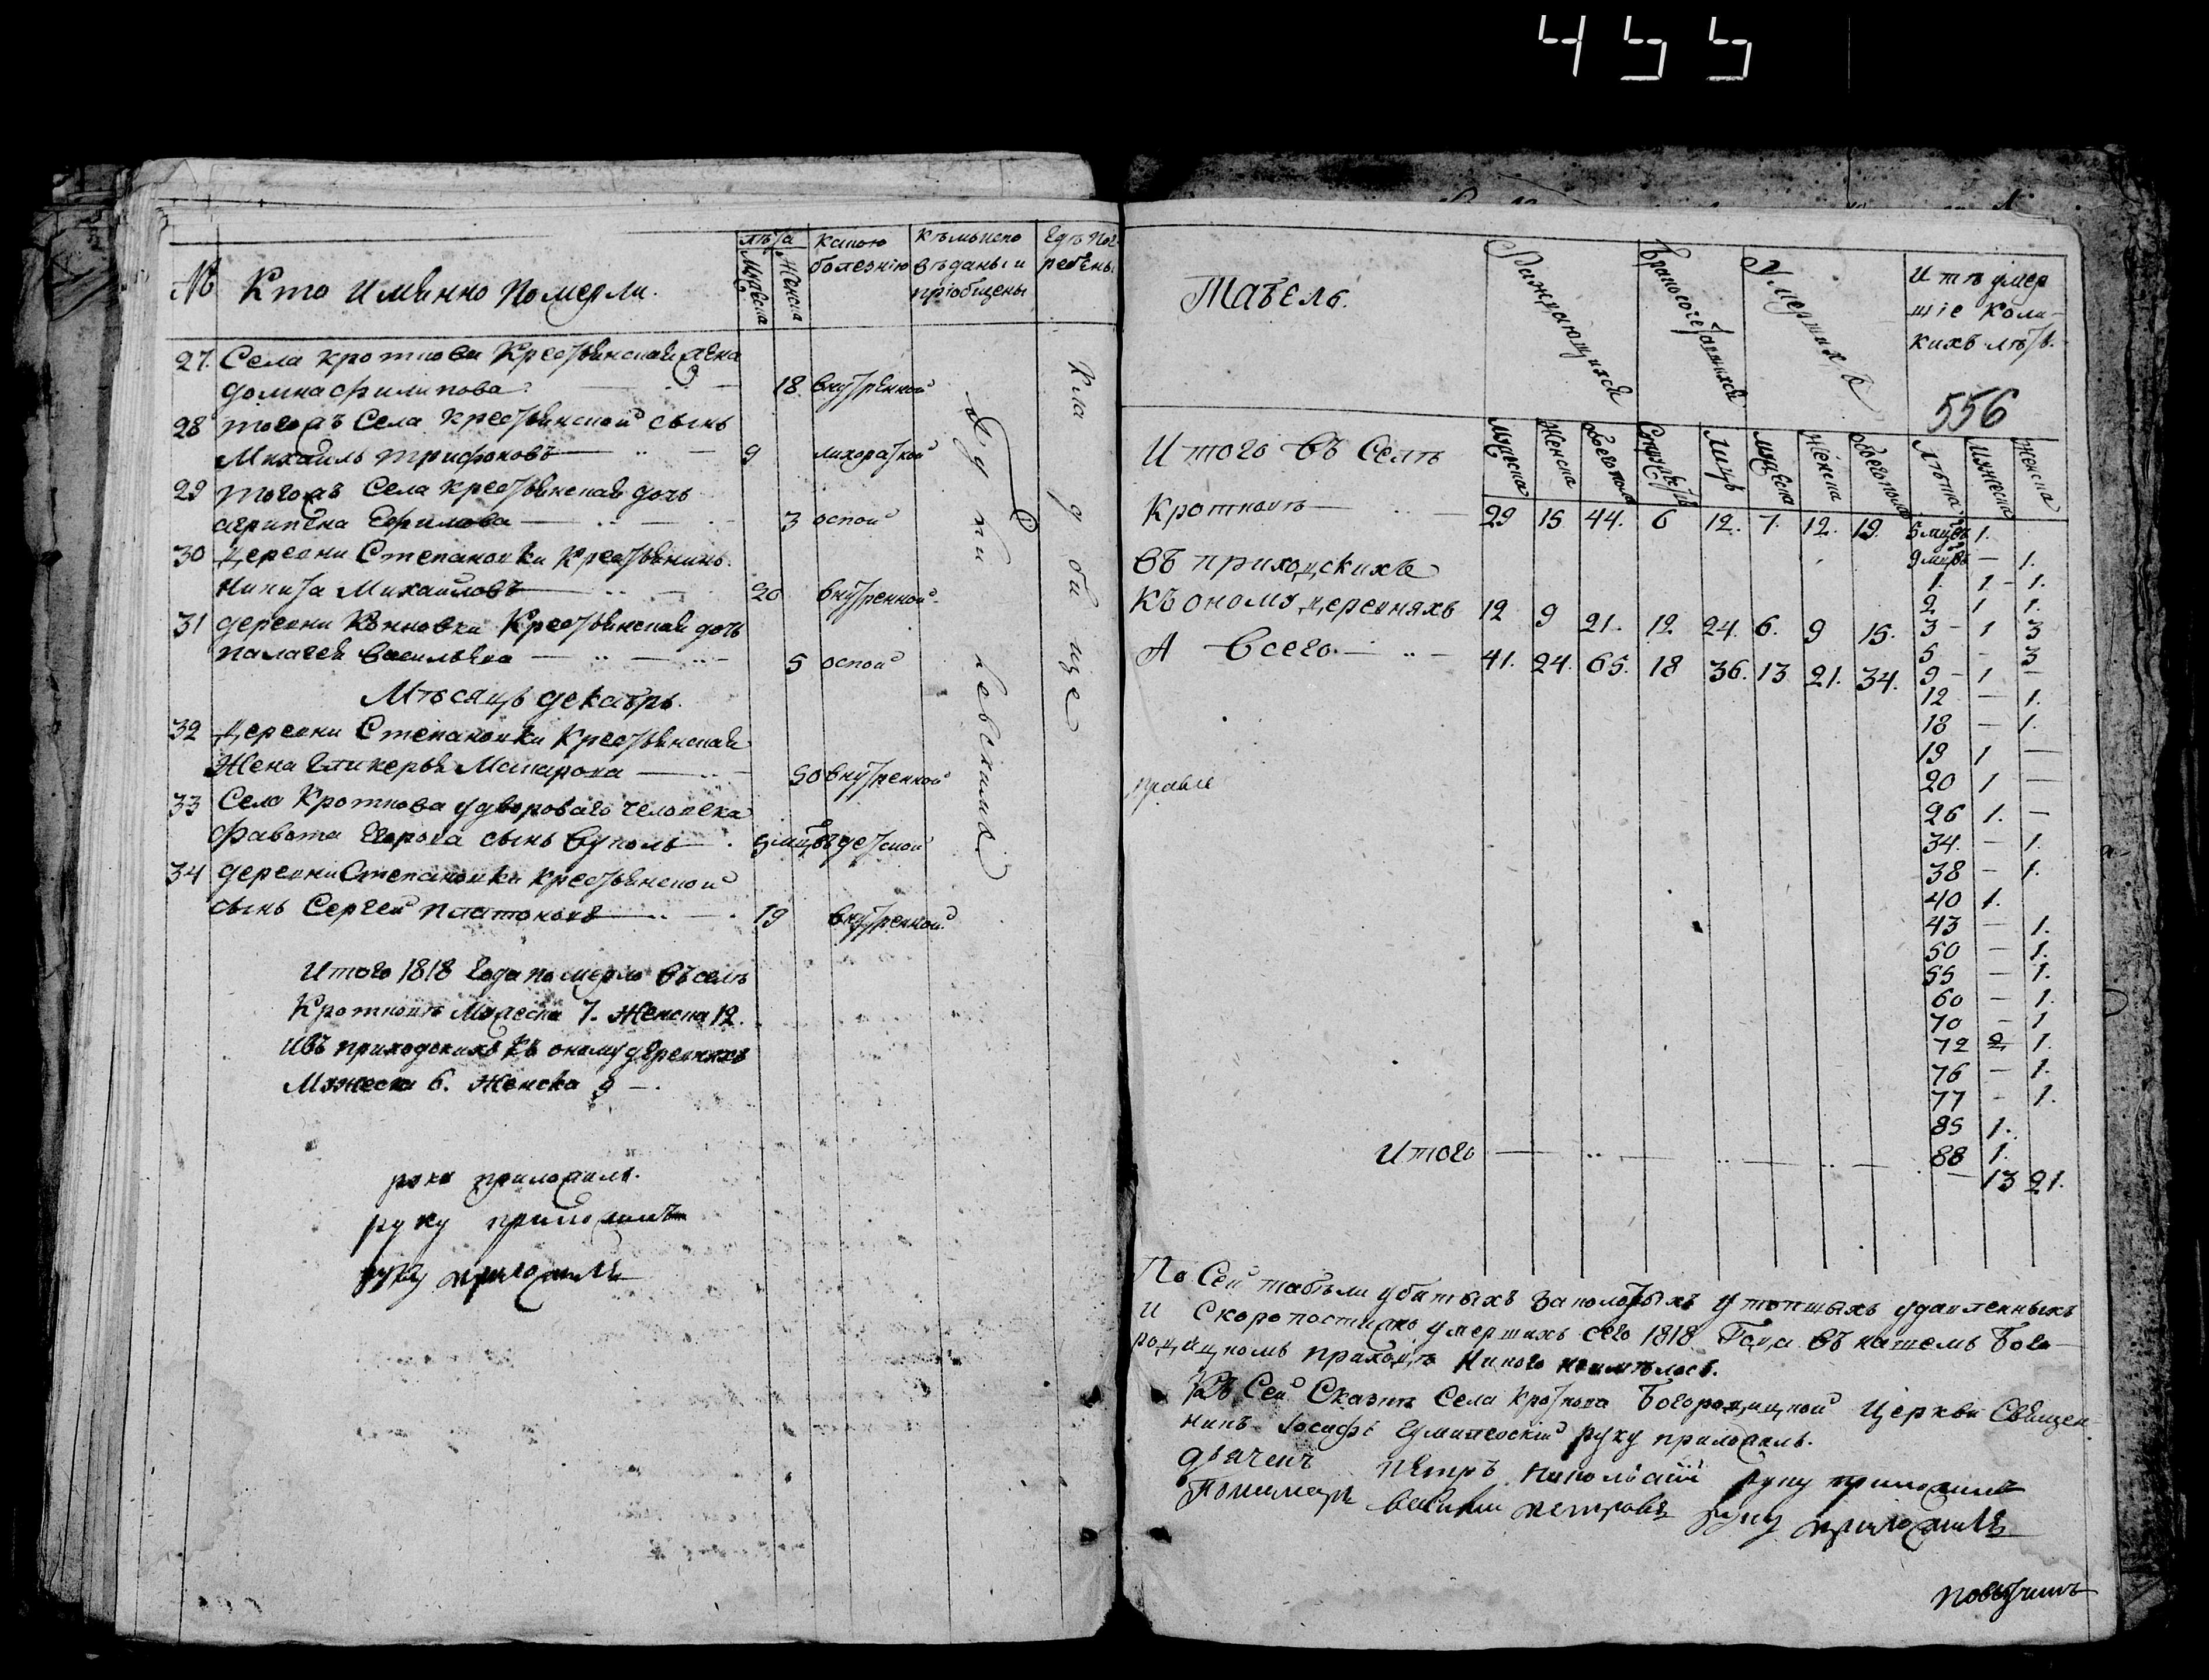 455
№ Кто имянно померли.
лѣта
Мужеска
Женска
какою
болезнію
Кѣмъ испо
вѣданы и
пріобщены
Гдѣ пог
ребены
27. Села кроткова Крестьянская жена
домна филипова 18 внутренной
28 тогожъ Села крестьянской сынъ
Михаилъ трифоновъ 9 лихораткой
29 тогожъ Села крестьянская дочь
агрипена Ефимова 3 оспой
30 деревни Степановки Крестьянинъ
Никита Михаиловъ 20 внутренной
31 деревни Крестьянская дочь
палагея васильева 5 оспой
Мѣсяцъ декабрь.
32 деревни Степановки Крестьянская
Жена Гликерья Макарова 50 внутренной
33 Села Кроткова удвороваго человека
Егорова сынъ 5 мцовъ детской
34 деревни Степановки крестьянской
сынъ Сергей платоновъ 19 внутренной
На кла д би ще
Итого 1818 Года померло въ селѣ
Кротковѣ Мужеска 7. Женска 12.
ивъ приходскихъ къ оному деревняхъ
Мужеска 6. Женска 9 —.
руку приложилъ.
руку приложилъ
руку приложилъ
Табель.
Раждающихся
Бракосочетавшихся
Умершихъ
И тѣ умер
шіе Коли-
кихъ лѣтъ.
556
Мужеска Женска Обоегопола Супружествъ Лицъ Мужеска Женска Обоегопола Лѣта Мужеска Женска
Итого въ Селѣ
Кротковѣ — 29 15 44. 6 12. 7. 12. 19.
въ приходскихъ
Къ оному деревняхъ 12 9 21. 12 24. 6. 9 15.
А Всего. — 41. 24. 65. 18 36. 13 21. 34.
5 мцовъ 1.
9 мцовъ — 1.
1. 1 - 1.
2 1 1.
3 - 1 3
5 - 3
9 - 1 -
12 — 1.
18 — 1.
19 1 —
20 1 —
26 1. —
34. — 1.
38 — 1.
40 1.
43 — 1.
50 — 1.
55 — 1.
60 — 1.
70 — 1
72 2 1.
76 — 1.
77 - 1.
85 1.
88 1.
Итого — 13 21.
По Сей табели убитыхъ заколотыхъ утопшыхъ удавленныхъ
и Скоропостижно умершихъ сего 1818 Года въ нашемъ Бого-
родицкомъ приходѣ Никого неимѣлось.
Къ Сей Сказкѣ Села Кроткова Богородицкой Церкви Священ
никъ Іосифъ руку приложилъ.
дьячекъ петръ руку приложилъ
Пономарь василий петровъ руку приложилъ